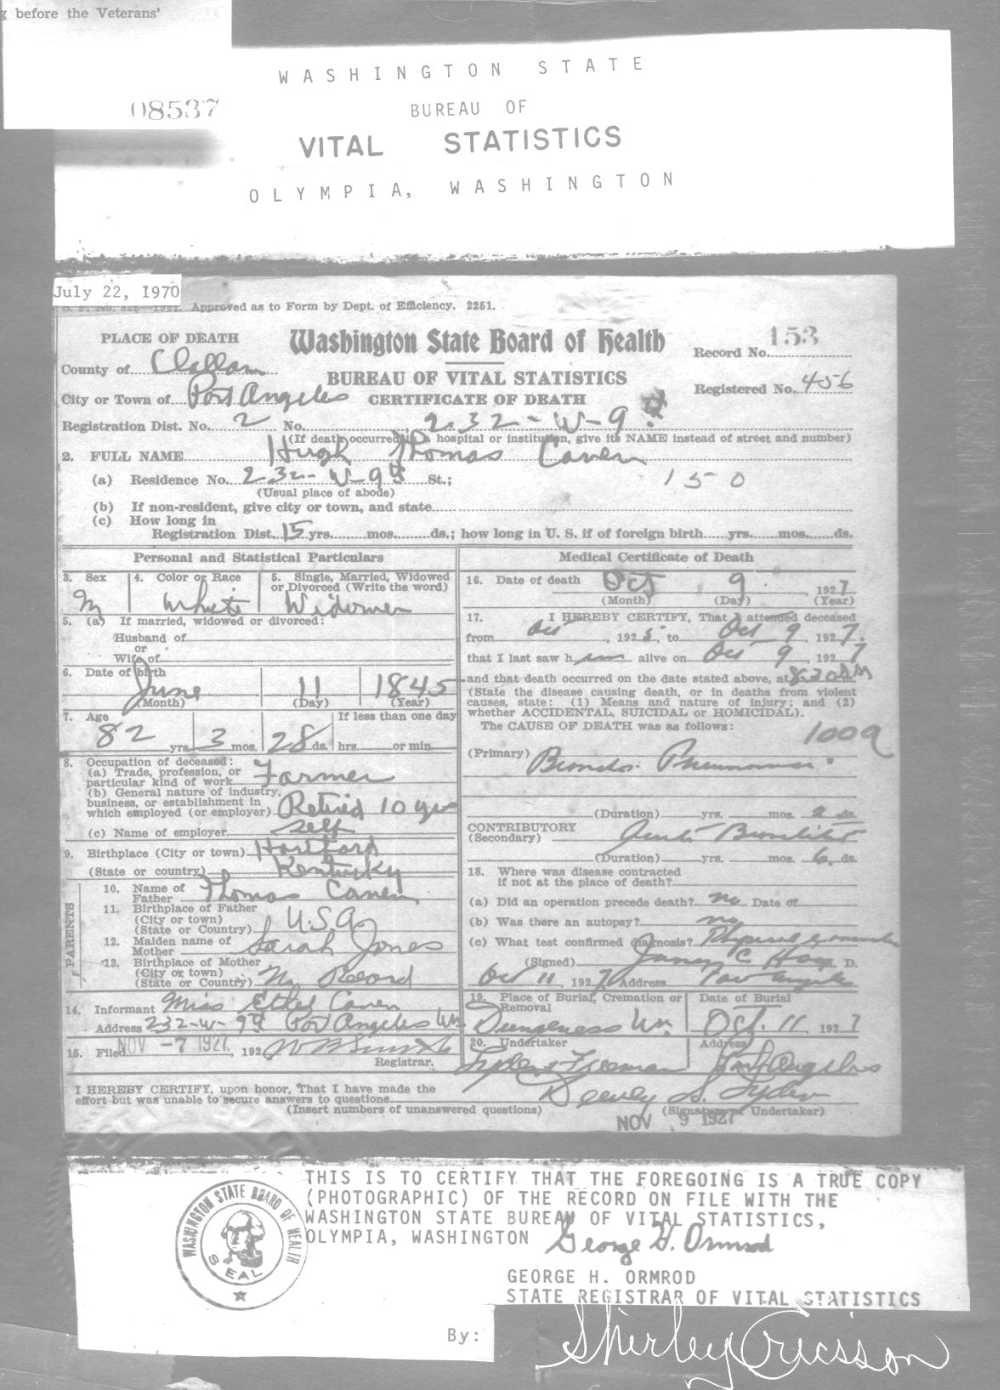 before the Veterans'
08537
WASHINGTON STATE
BUREAU OF
VITAL STATISTICS
OLYMPIA, WASHINGTON
July 22, 1970
Approved as to Form by Dept. of Efficiency. 2251.
PLACE OF DEATH
Washington State Board of Health
Record No. 153
County of Clallam
BUREAU OF VITAL STATISTICS
City or Town of Port Angeles
CERTIFICATE OF DEATH
Registered No. 456
Registration Dist. No. 2 No. 232-W-9
(If death occurred in a hospital or institution, give its NAME instead of street and number)
2. FULL NAME Hugh Thomas Caven
(a) Residence No. 232-W-9th St.; 150
(Usual place of abode)
(b) If non-resident, give city or town, and state
(c) How long in
Registration Dist. 15 yrs. mos. ds.; how long in U. S. if of foreign birth yrs. mos. ds.
Personal and Statistical Particulars
3. Sex 4. Color or Race 5. Single, Married, Widowed
or Divorced (Write the word)
M White Widower
5. (a) If married, widowed or divorced:
Husband of
or
Wife of
6. Date of birth
June 11 1845
(Month) (Day) (Year)
7. Age If less than one day
82 yrs. 3 mos. 28 ds. hrs. or min.
8. Occupation of deceased:
(a) Trade, profession, or
particular kind of work Farmer
(b) General nature of industry,
business, or establishment in
which employed (or employer) Retired 10 yrs
(c) Name of employer self
9. Birthplace (City or town) Hartford
(State or country) Kentucky
PARENTS
10. Name of
Father Thomas Caven
11. Birthplace of Father
(City or town)
(State or Country) U.S.A.
12. Maiden name of
Mother Sarah Jones
13. Birthplace of Mother
(City or town)
(State or Country) No Record
14. Informant Miss Ethel Caven
Address 232-W-9th Port Angeles Wn.
15. Filed NOV -7 1927, 192
Registrar.
Medical Certificate of Death
16. Date of death Oct 9 1927
(Month) (Day) (Year)
17. I HEREBY CERTIFY, That I attended deceased
from Oct, 192 5, to Oct 9, 1927.
that I last saw him alive on Oct 9, 1927
and that death occurred on the date stated above, at 8:20 AM
(State the disease causing death, or in deaths from violent
causes, state: (1) Means and nature of injury; and (2)
whether ACCIDENTAL, SUICIDAL or HOMICIDAL).
The CAUSE OF DEATH was as follows: 100a
(Primary) Broncho Pneumonia
(Duration) yrs. mos. ds.
CONTRIBUTORY
(Secondary) Acute Bronchitis
(Duration) yrs. mos. 6 ds.
18. Where was disease contracted
if not at the place of death?
(a) Did an operation precede death? no Date of
(b) Was there an autopsy? no
(c) What test confirmed diagnosis? Physical
(Signed) C. Hay D.
Oct 11, 1927 Address Port Angeles
19. Place of Burial, Cremation or
Removal Date of Burial
Dungeness Wn. Oct. 11 1927
20. Undertaker Address
Freeman Port Angeles
I HEREBY CERTIFY, upon honor, That I have made the
effort but was unable to secure answers to questions
(Insert numbers of unanswered questions)
(Signature of Undertaker)
NOV 9 1927
THIS IS TO CERTIFY THAT THE FOREGOING IS A TRUE COPY
(PHOTOGRAPHIC) OF THE RECORD ON FILE WITH THE
WASHINGTON STATE BUREAU OF VITAL STATISTICS,
OLYMPIA, WASHINGTON George H. Ormrod
GEORGE H. ORMROD
STATE REGISTRAR OF VITAL STATISTICS
WASHINGTON STATE BOARD OF HEALTH
SEAL
By: Shirley Ericsson